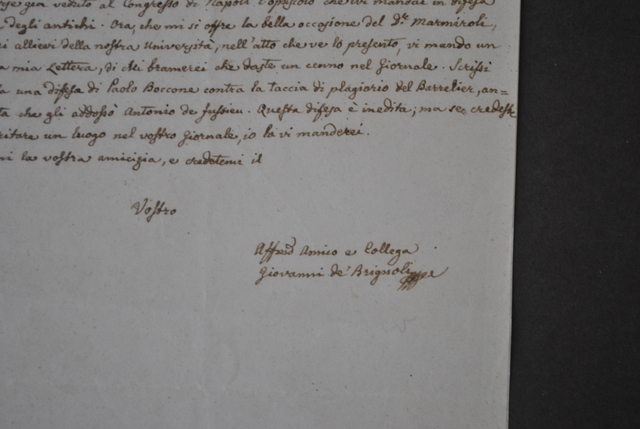 già veduto al Congresso di Napoli l'opuscolo che ivi mandai in difesa
degli antichi. Ora, che mi si offre la bella occasione del d.r Marmiroli,
allievi della nostra Università, nell'atto che ve lo presento, vi mando un
mia Lettera, di cui bramerei che daste un cenno nel Giornale. Scrissi
una difesa di Paolo Boccone contro la taccia di plagiario del Barrelier, an=
che gli addossò Antonio de Jussieu. Questa difesa è inedita; ma se credeste
un luogo nel vostro Giornale, io la vi manderei.
la vostra amicizia, e credetemi il
Vostro
Affez.o Amico e Collega
Giovanni de' Brignoli